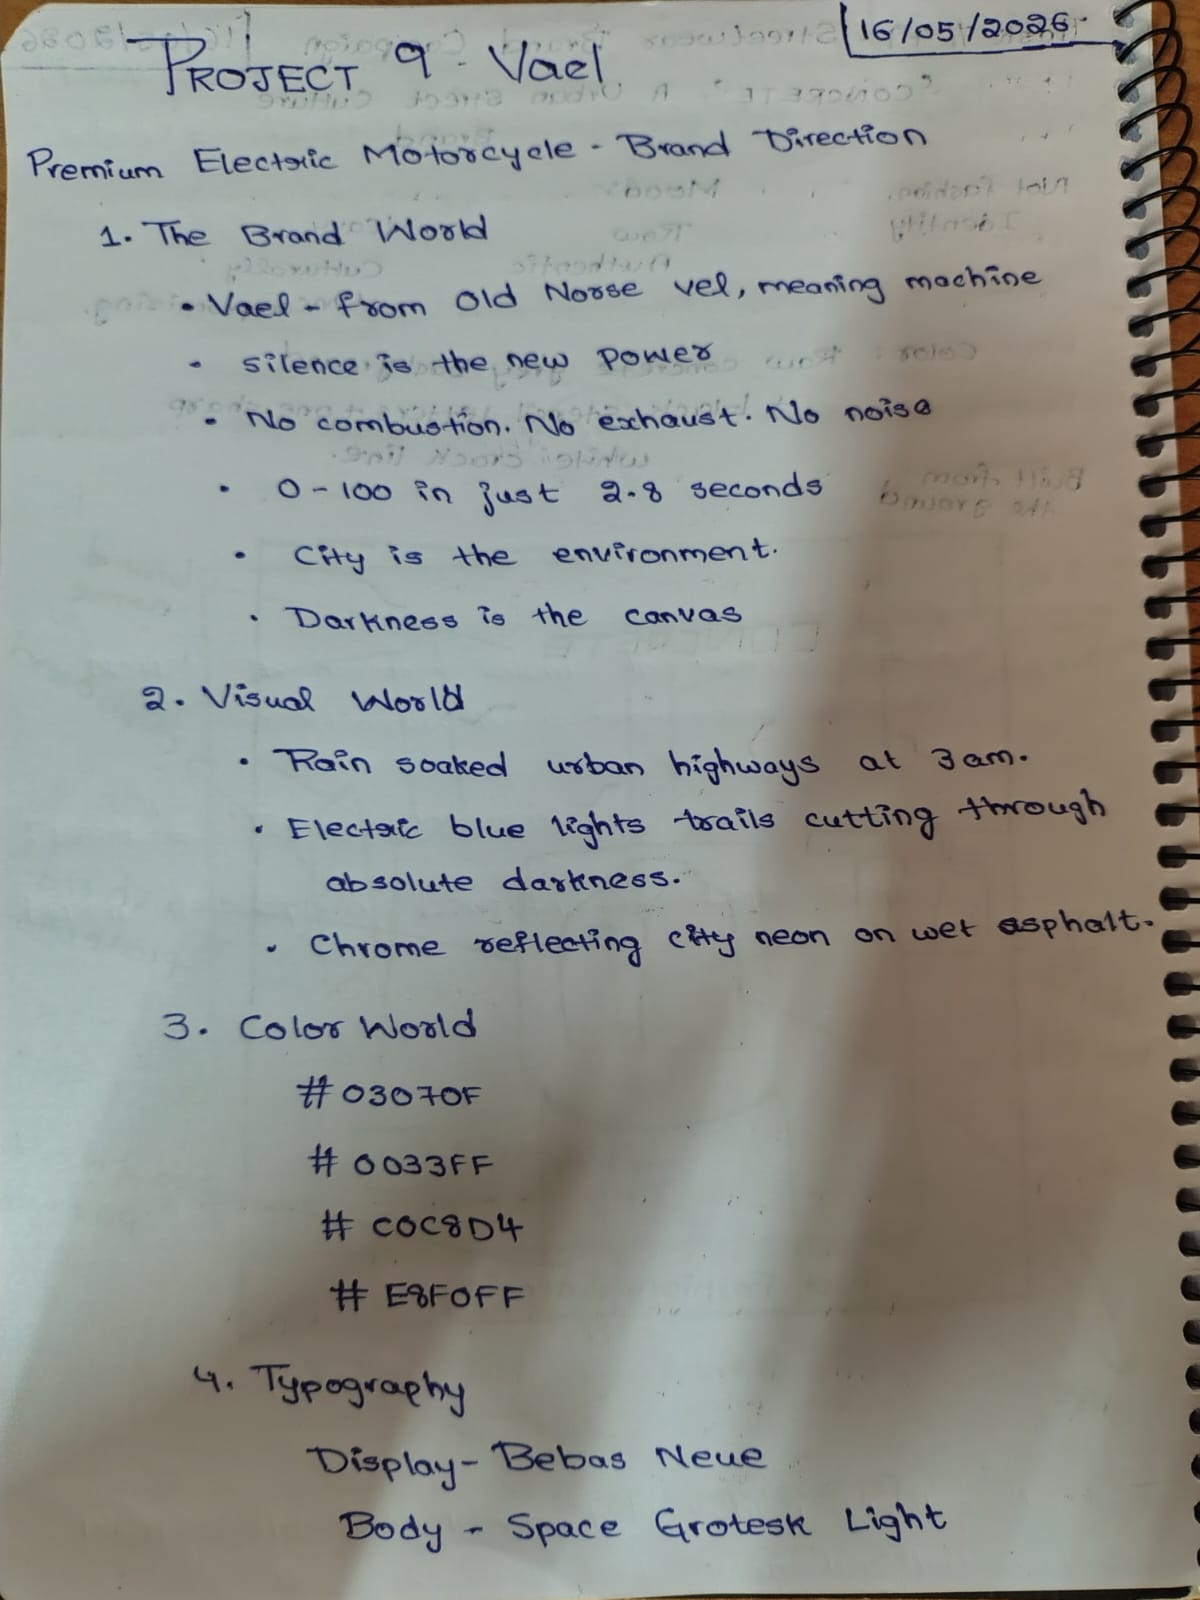 16/05/2026
PROJECT 9 - Vael
Premium Electric Motorcycle - Brand Direction
1. The Brand World
• Vael - from Old Norse vel, meaning machine
• silence is the new power
• No combustion. No exhaust. No noise
• 0-100 in just 2.8 seconds
• City is the environment.
• Darkness is the canvas
2. Visual World
• Rain soaked urban highways at 3am.
• Electric blue lights trails cutting through
absolute darkness.
• Chrome reflecting city neon on wet asphalt.
3. Color World
#03070F
#0033FF
#C0C8D4
#E8F0FF
4. Typography
Display - Bebas Neue
Body - Space Grotesk Light